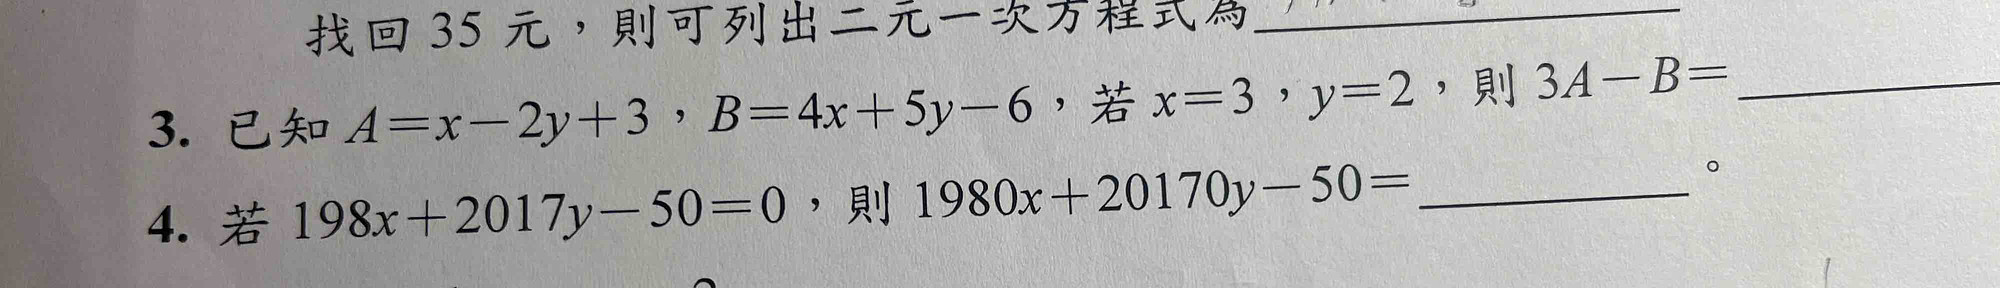 找回 35 元，則可列出二元一次方程式為
3. 已知 A=x-2y+3，B=4x+5y-6，若 x=3，y=2，則 3A-B=
4. 若 198x+2017y-50=0，則 1980x+20170y-50=________。